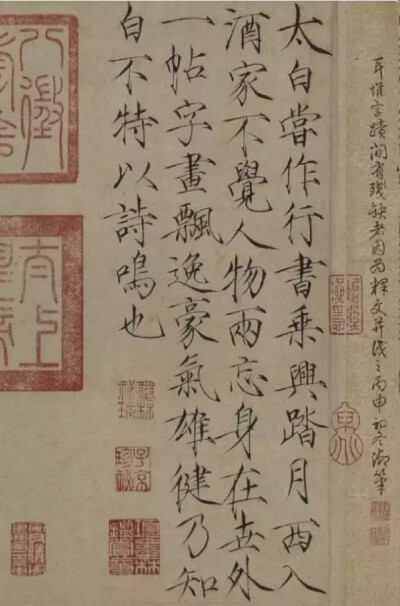 耳惟字蹟間有殘缺者因為釋文并識之丙申初冬御筆
太白嘗作行書乘興踏月西入
酒家不覺人物兩忘身在世外
一帖字畫飄逸豪氣雄健乃知
白不特以詩鳴也
子京珍秘
八徵
太上